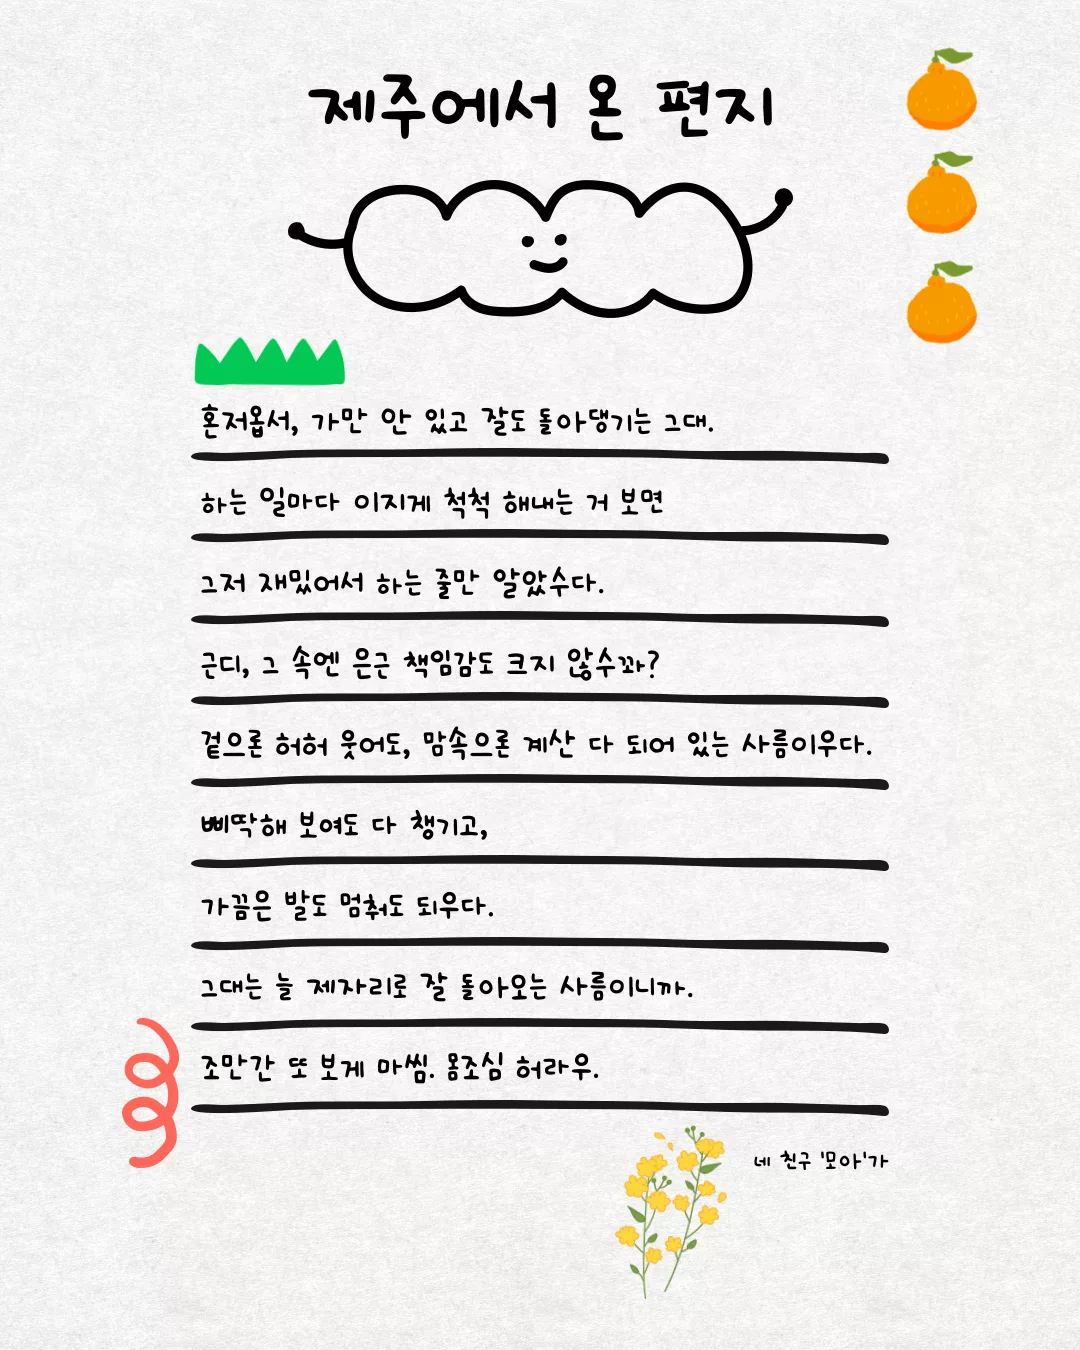 제주에서 온 편지
혼저옵서, 가만 안 있고 잘도 돌아댕기는 그대.
하는 일마다 이지게 척척 해내는 거 보면
그저 재밌어서 하는 줄만 알았수다.
근디, 그 속엔 은근 책임감도 크지 않수꽈?
겉으론 허허 웃어도, 맘속으론 계산 다 되어 있는 사름이우다.
삐딱해 보여도 다 챙기고,
가끔은 발도 멈춰도 되우다.
그대는 늘 제자리로 잘 돌아오는 사름이니까.
조만간 또 보게 마씸. 몸조심 허라우.
네 친구 '모아'가